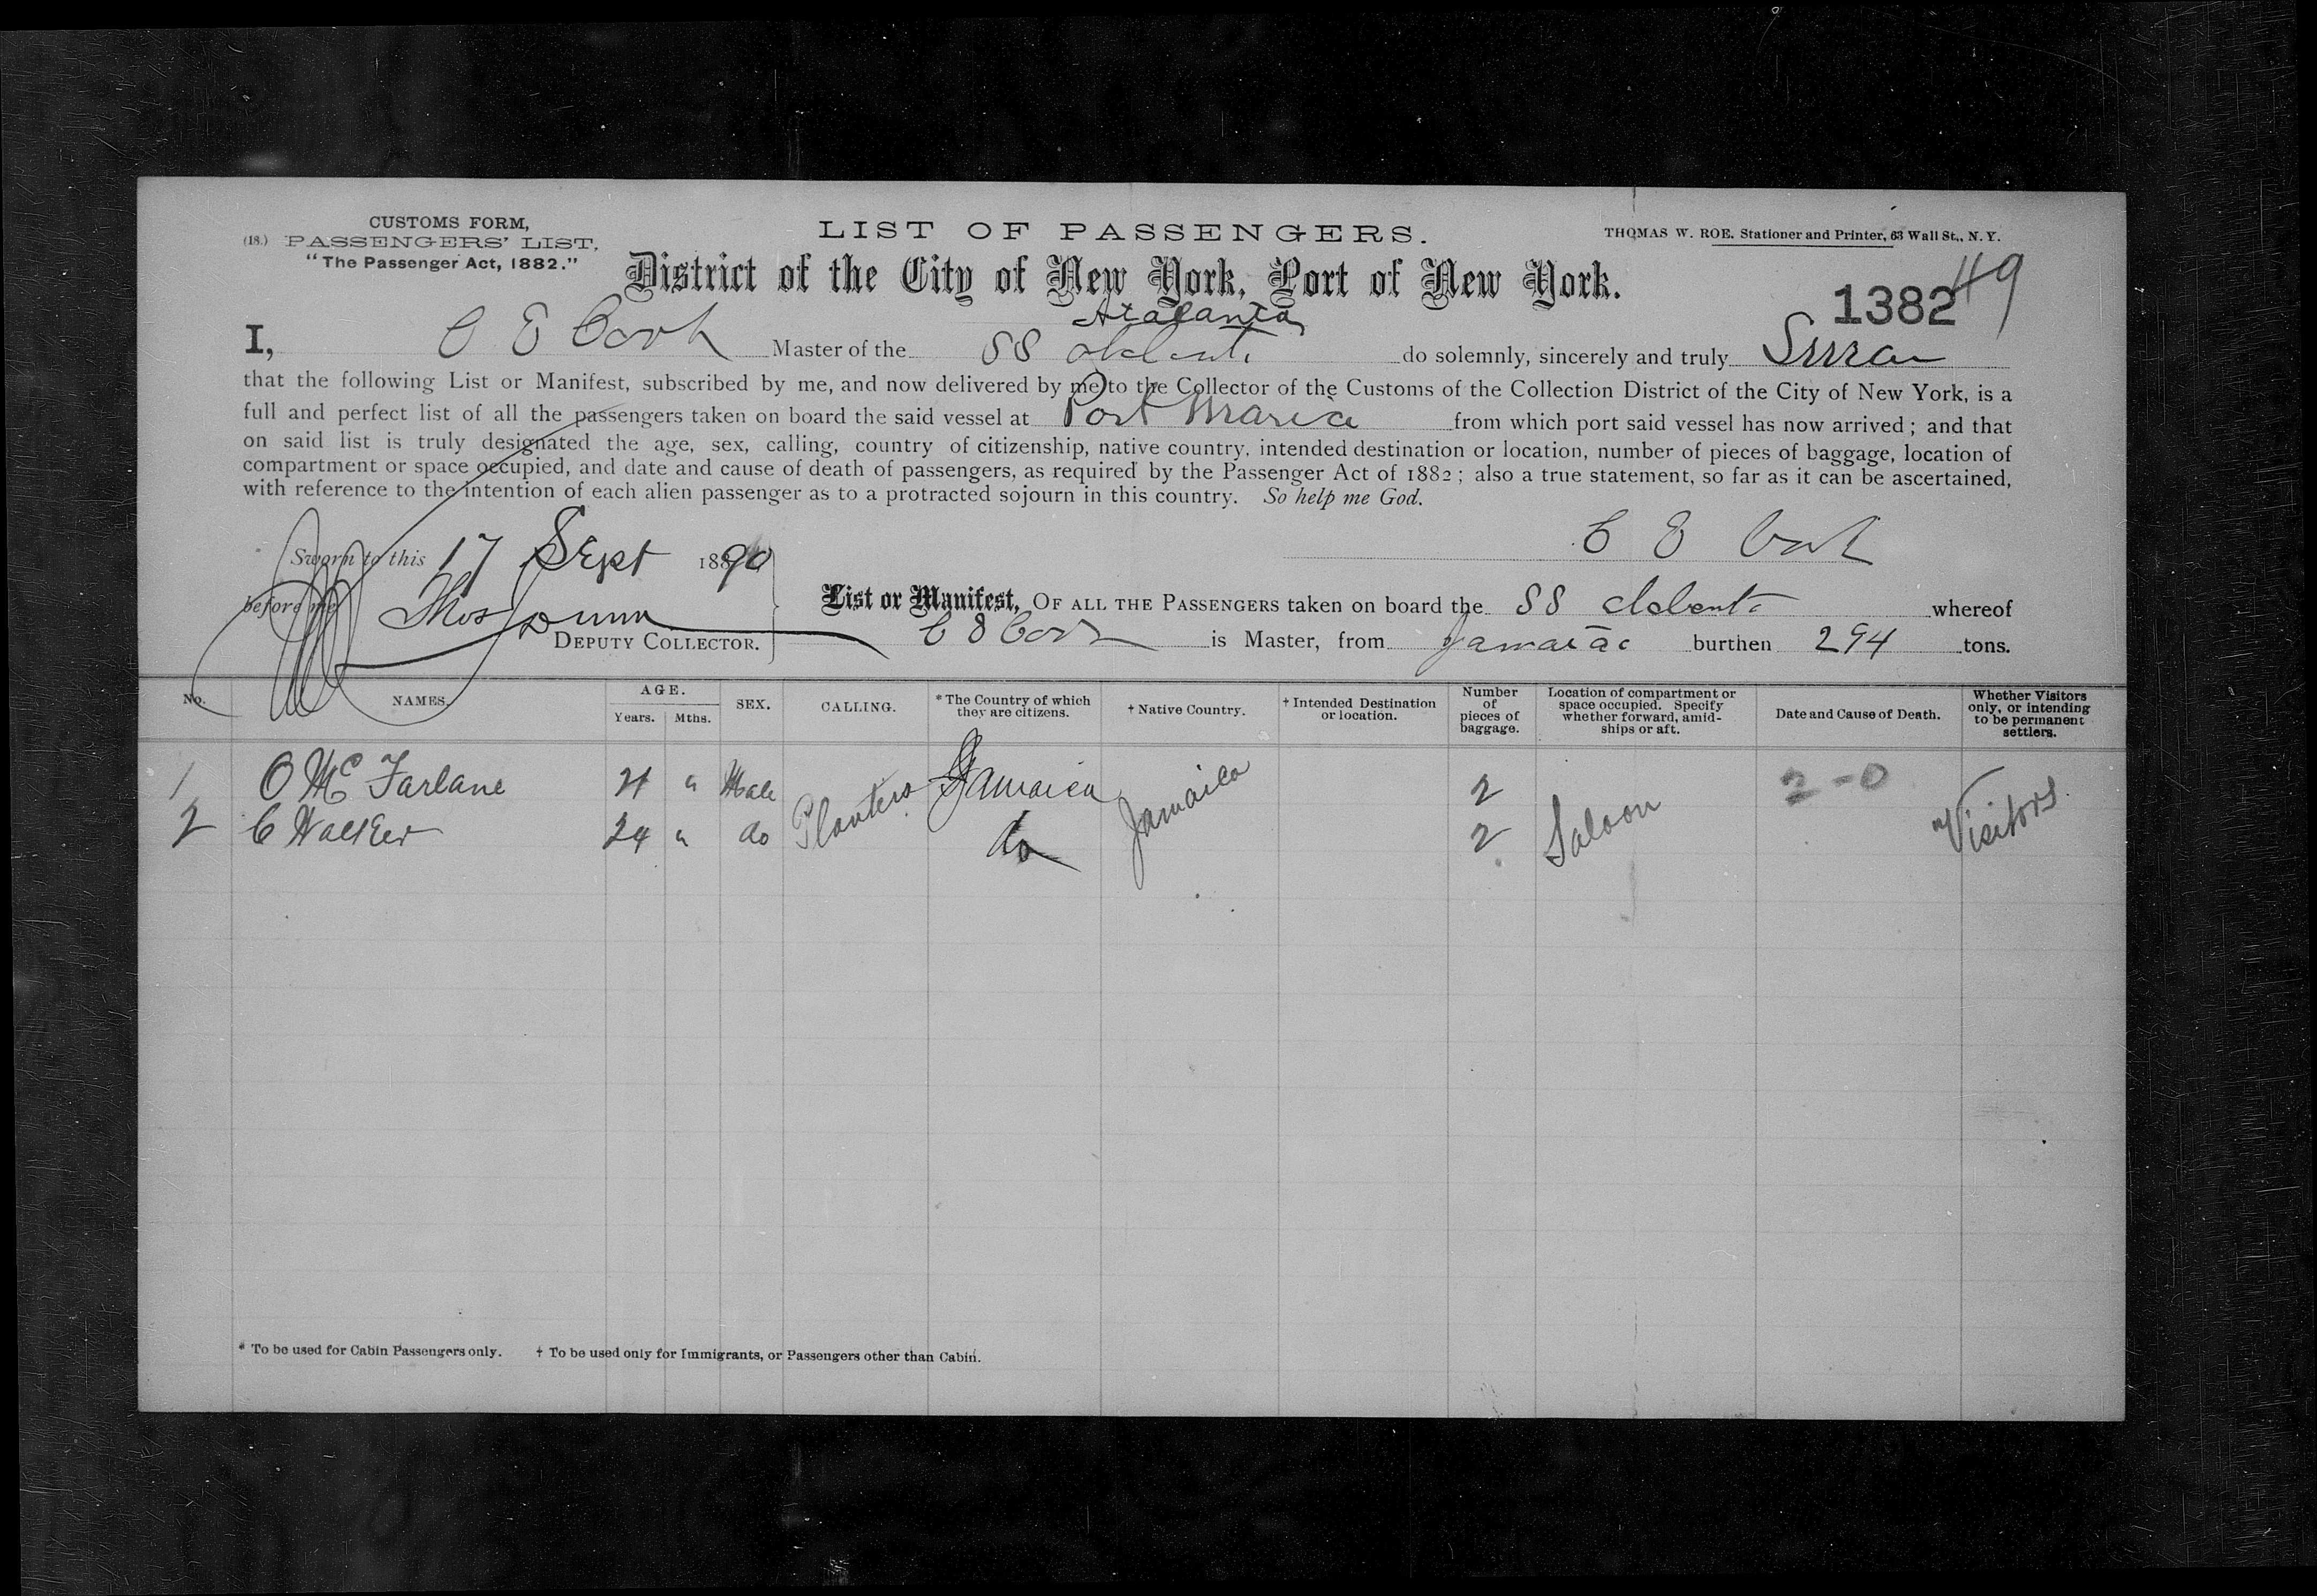 CUSTOMS FORM,
(18.) PASSENGERS' LIST,
"The Passenger Act, 1882."
LIST OF PASSENGERS.
THOMAS W. ROE. Stationer and Printer, 63 Wall St., N. Y.
District of the City of New York, Port of New York.
1382 49
Atalanta
I, C E Cook Master of the SS Atalanta do solemnly, sincerely and truly Swear
that the following List or Manifest, subscribed by me, and now delivered by me to the Collector of the Customs of the Collection District of the City of New York, is a
full and perfect list of all the passengers taken on board the said vessel at Port Maria from which port said vessel has now arrived; and that
on said list is truly designated the age, sex, calling, country of citizenship, native country, intended destination or location, number of pieces of baggage, location of
compartment or space occupied, and date and cause of death of passengers, as required by the Passenger Act of 1882; also a true statement, so far as it can be ascertained,
with reference to the intention of each alien passenger as to a protracted sojourn in this country. So help me God.
C E Cook
Sworn to this 17 Sept 1890
before me Thos Dunn
DEPUTY COLLECTOR.
List or Manifest, OF ALL THE PASSENGERS taken on board the SS Atalanta whereof
C E Cook is Master, from Jamaica burthen 294 tons.
No. NAMES. AGE. Years. Mths. SEX. CALLING. * The Country of which they are citizens. † Native Country. † Intended Destination or location. Number of pieces of baggage. Location of compartment or space occupied. Specify whether forward, amidships or aft. Date and Cause of Death. Whether Visitors only, or intending to be permanent settlers.
1 O McFarlane 21 " Male Planters Jamaica Jamaica 2 Saloon 2-0 Visitors
2 C Walker 24 " do do 2
* To be used for Cabin Passengers only. † To be used only for Immigrants, or Passengers other than Cabin.